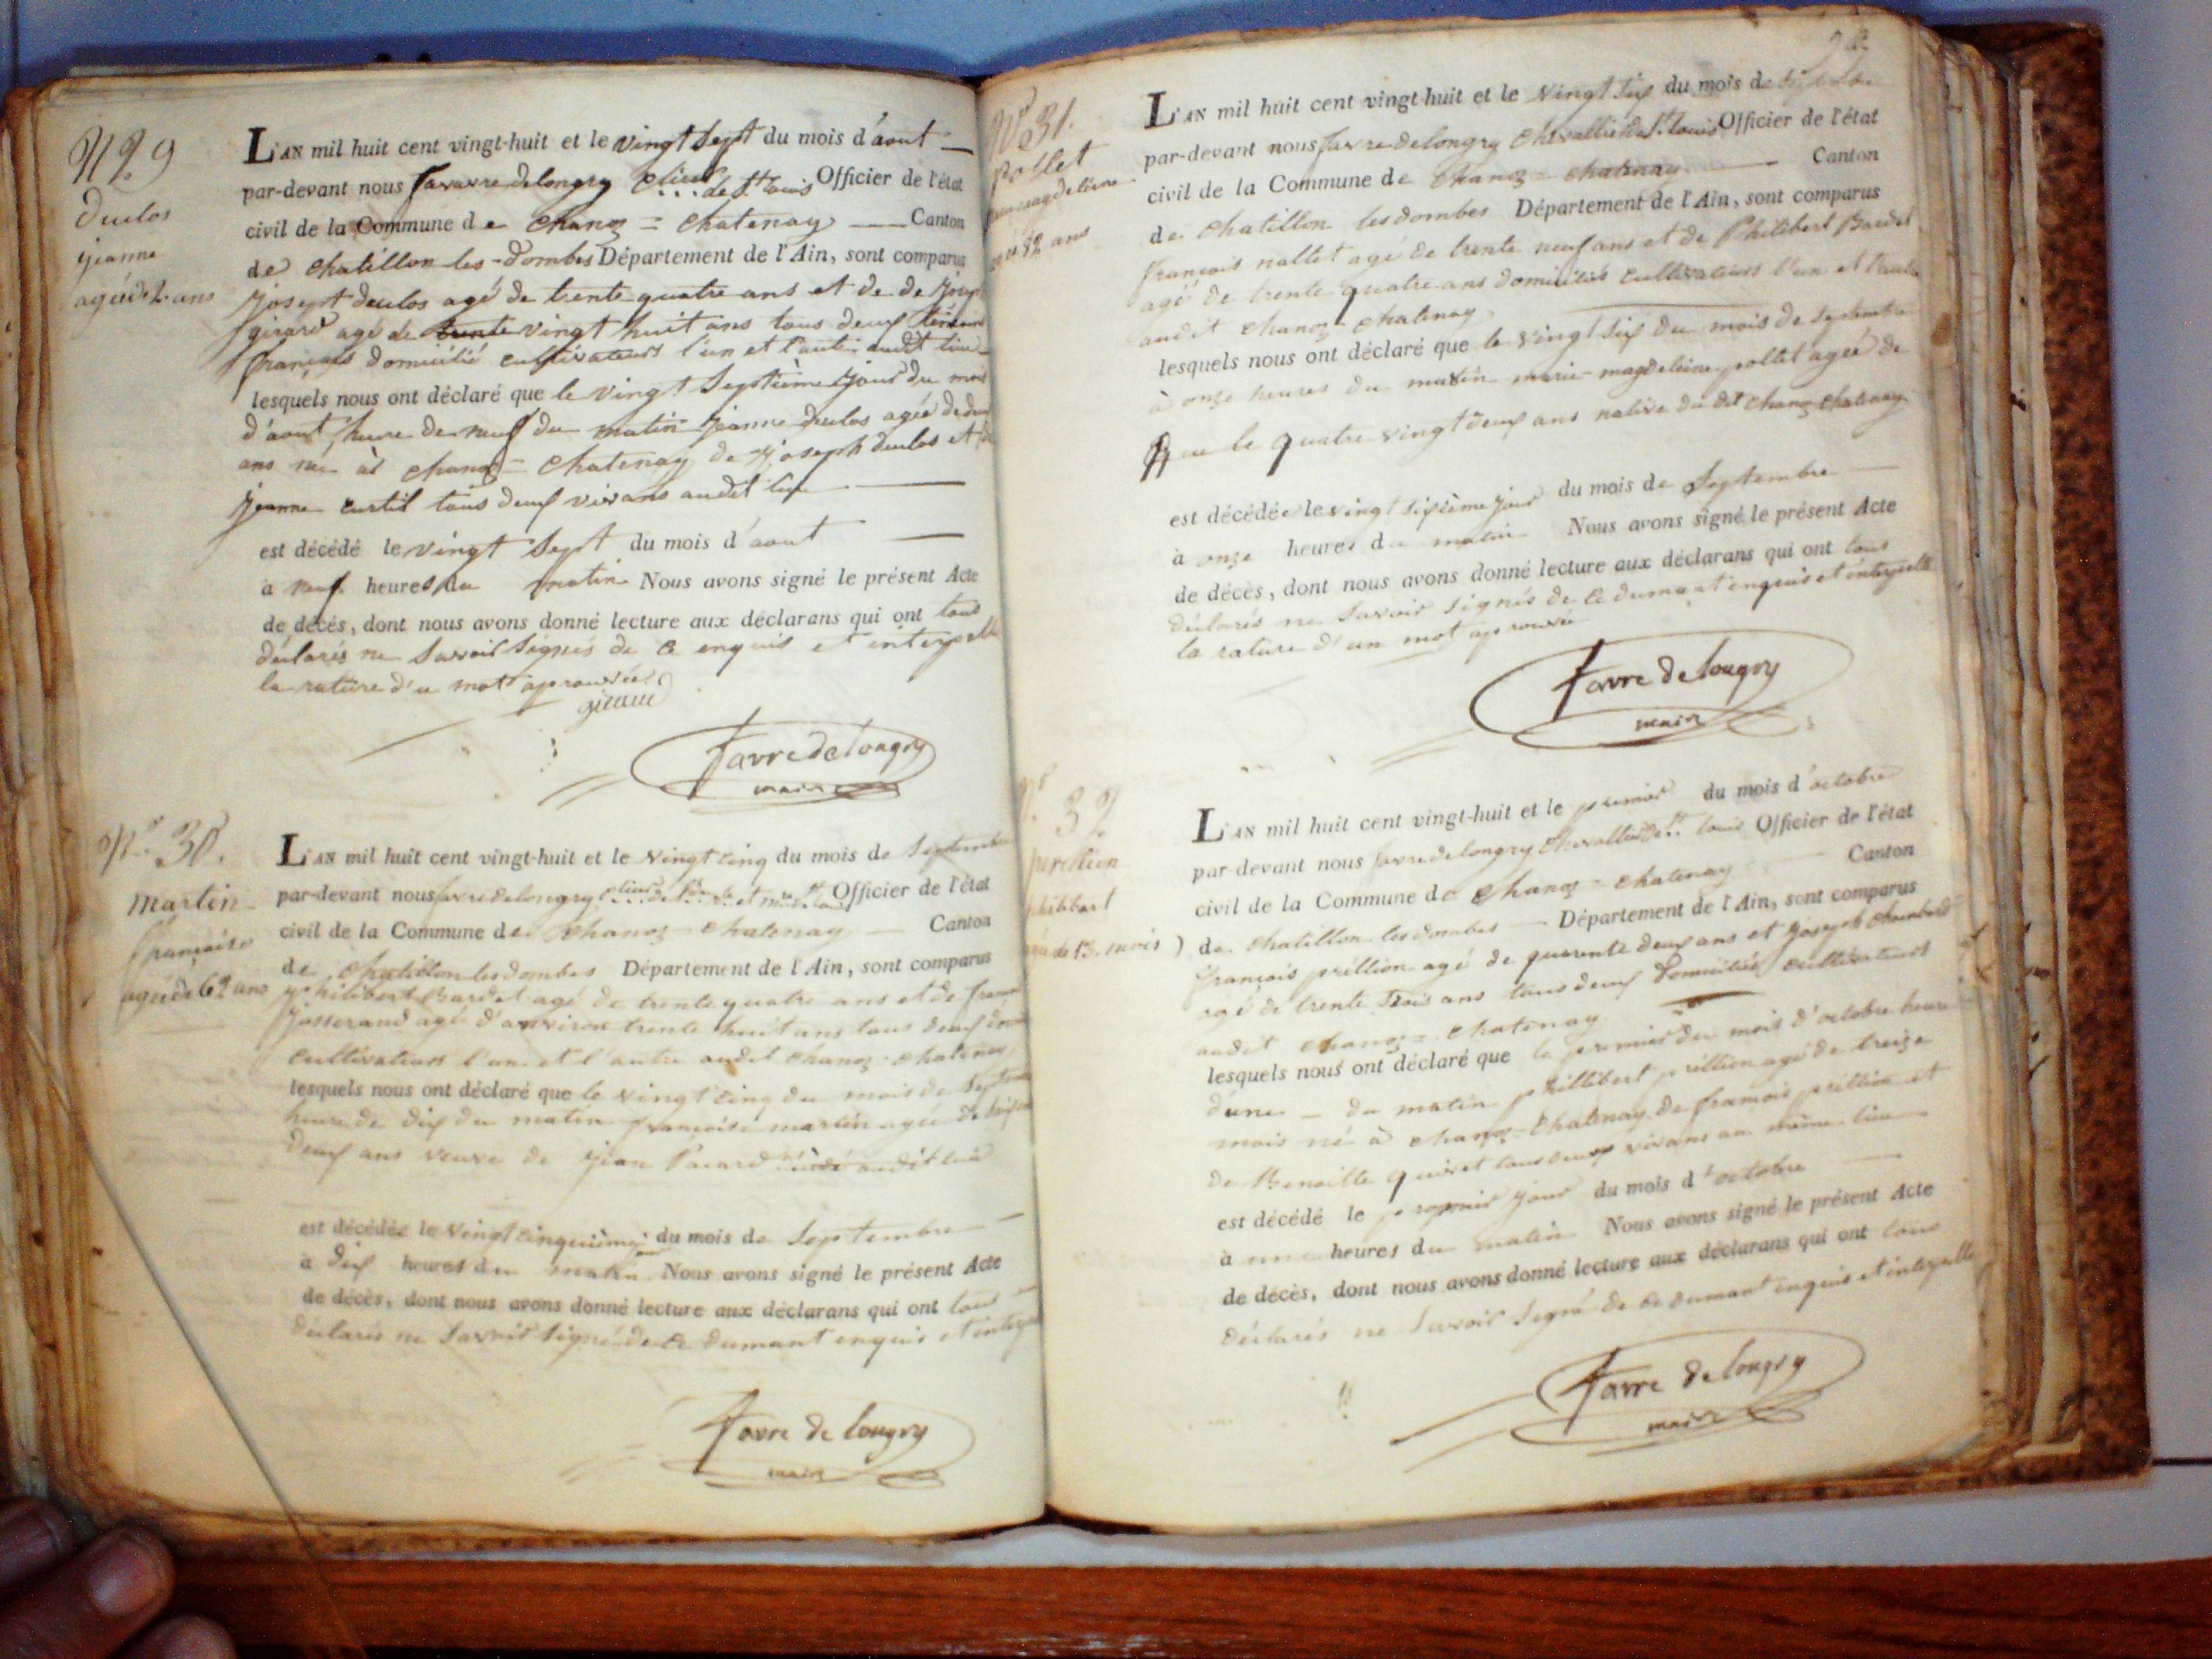 N 29
duclos
jeanne
agée de 2 ans
L'AN mil huit cent vingt-huit et le vingt sept du mois d'aout
par-devant nous favre delongry de St Louis Officier de l'état
civil de la Commune de chanoz = chatenay Canton
de chatillon les-dombes Département de l'Ain, sont comparus
josept duclos agé de trente quatre ans et de de josep
girard agé de trente vingt huit ans tous deux témoins
français domicilié cultivateurs l'un et l'autre audit lieu
lesquels nous ont déclaré que le vingt septième jour du mois
d'aout heure de neuf du matin jeanne duclos agée de deux
ans née à chanoz = chatenay de joseph duclos et de
jeanne curtil tous deux vivans audit lieu
est décédé le vingt sept du mois d'aout
à neuf heures du matin Nous avons signé le présent Acte
de décès, dont nous avons donné lecture aux déclarans qui ont tous
déclarés ne savoir signés de ce enquis et interpellé
la rature d'u mot aprouvée
girard
favre de longry
maire
N° 30.
martin
françoise
agée de 62 ans
L'AN mil huit cent vingt-huit et le vingt cinq du mois de septembre
par-devant nous favre delongry Officier de l'état
civil de la Commune de chanoz = chatenay Canton
de chatillon les dombes Département de l'Ain, sont comparus
philibert Bardet agé de trente quatre ans et de franc
josserand agé d'anviron trente huit ans tous deux dom
cultivateurs l'un et l'autre audit chanoz = chatenay
lesquels nous ont déclaré que le vingt cinq du mois de septembre
heure de dix du matin françoise martin agée de soixante
deux ans veuve de jean Pacard audit lieu
est décédée le vingt cinquième jour du mois de septembre
à dix heures du matin Nous avons signé le présent Acte
de décès, dont nous avons donné lecture aux déclarans qui ont tous
déclarés ne savoir signé de ce dumant enquis et interpellé
favre de longry
maire
N° 31.
pollet
marie magdeleine
agée de 82 ans
L'AN mil huit cent vingt-huit et le vingt six du mois de septembre
par-devant nous favre delongry chevallier de St Louis Officier de l'état
civil de la Commune de chanoz = chatenay Canton
de chatillon les dombes Département de l'Ain, sont comparus
françois nallet agé de trente neuf ans et de Philibert Bardet
agé de trente quatre ans domiciliés cultivateurs l'un et l'autre
audit chanoz = chatenay
lesquels nous ont déclaré que le vingt six du mois de septembre
à onze heures du matin marie-magdeleine pollet agée de
que le quatre vingt deux ans native du dit chanoz chatenay
est décédée le vingt sixième jour du mois de septembre
à onze heures du matin Nous avons signé le présent Acte
de décès, dont nous avons donné lecture aux déclarans qui ont tous
déclarés ne savoir signés de ce dumant enquis et interpellé
la rature d'un mot aprouvée
favre de longry
maire
N° 32
prellion
philibert
agé de 13 mois
L'AN mil huit cent vingt-huit et le premier du mois d'octobre
par-devant nous favre delongry chevallier de St louis Officier de l'état
civil de la Commune de chanoz = chatenay Canton
de chatillon les dombes Département de l'Ain, sont comparus
françois préllion agé de quarente deux ans et joseph chambard
agé de trente trois ans tous deux domiciliés cultivateurs
audit chanoz = chatenay
lesquels nous ont déclaré que le premier du mois d'octobre heure
d'une du matin phillibert préllion agé de treize
mois né à chanoz = chatenay de françois préllion et
de Benoitte quivet tous deux vivans au même lieu
est décédé le premier jour du mois d'octobre
à une heures du matin Nous avons signé le présent Acte
de décès, dont nous avons donné lecture aux déclarans qui ont tous
déclarés ne savoir signé de ce dumant enquis et interpellé
favre de longry
maire